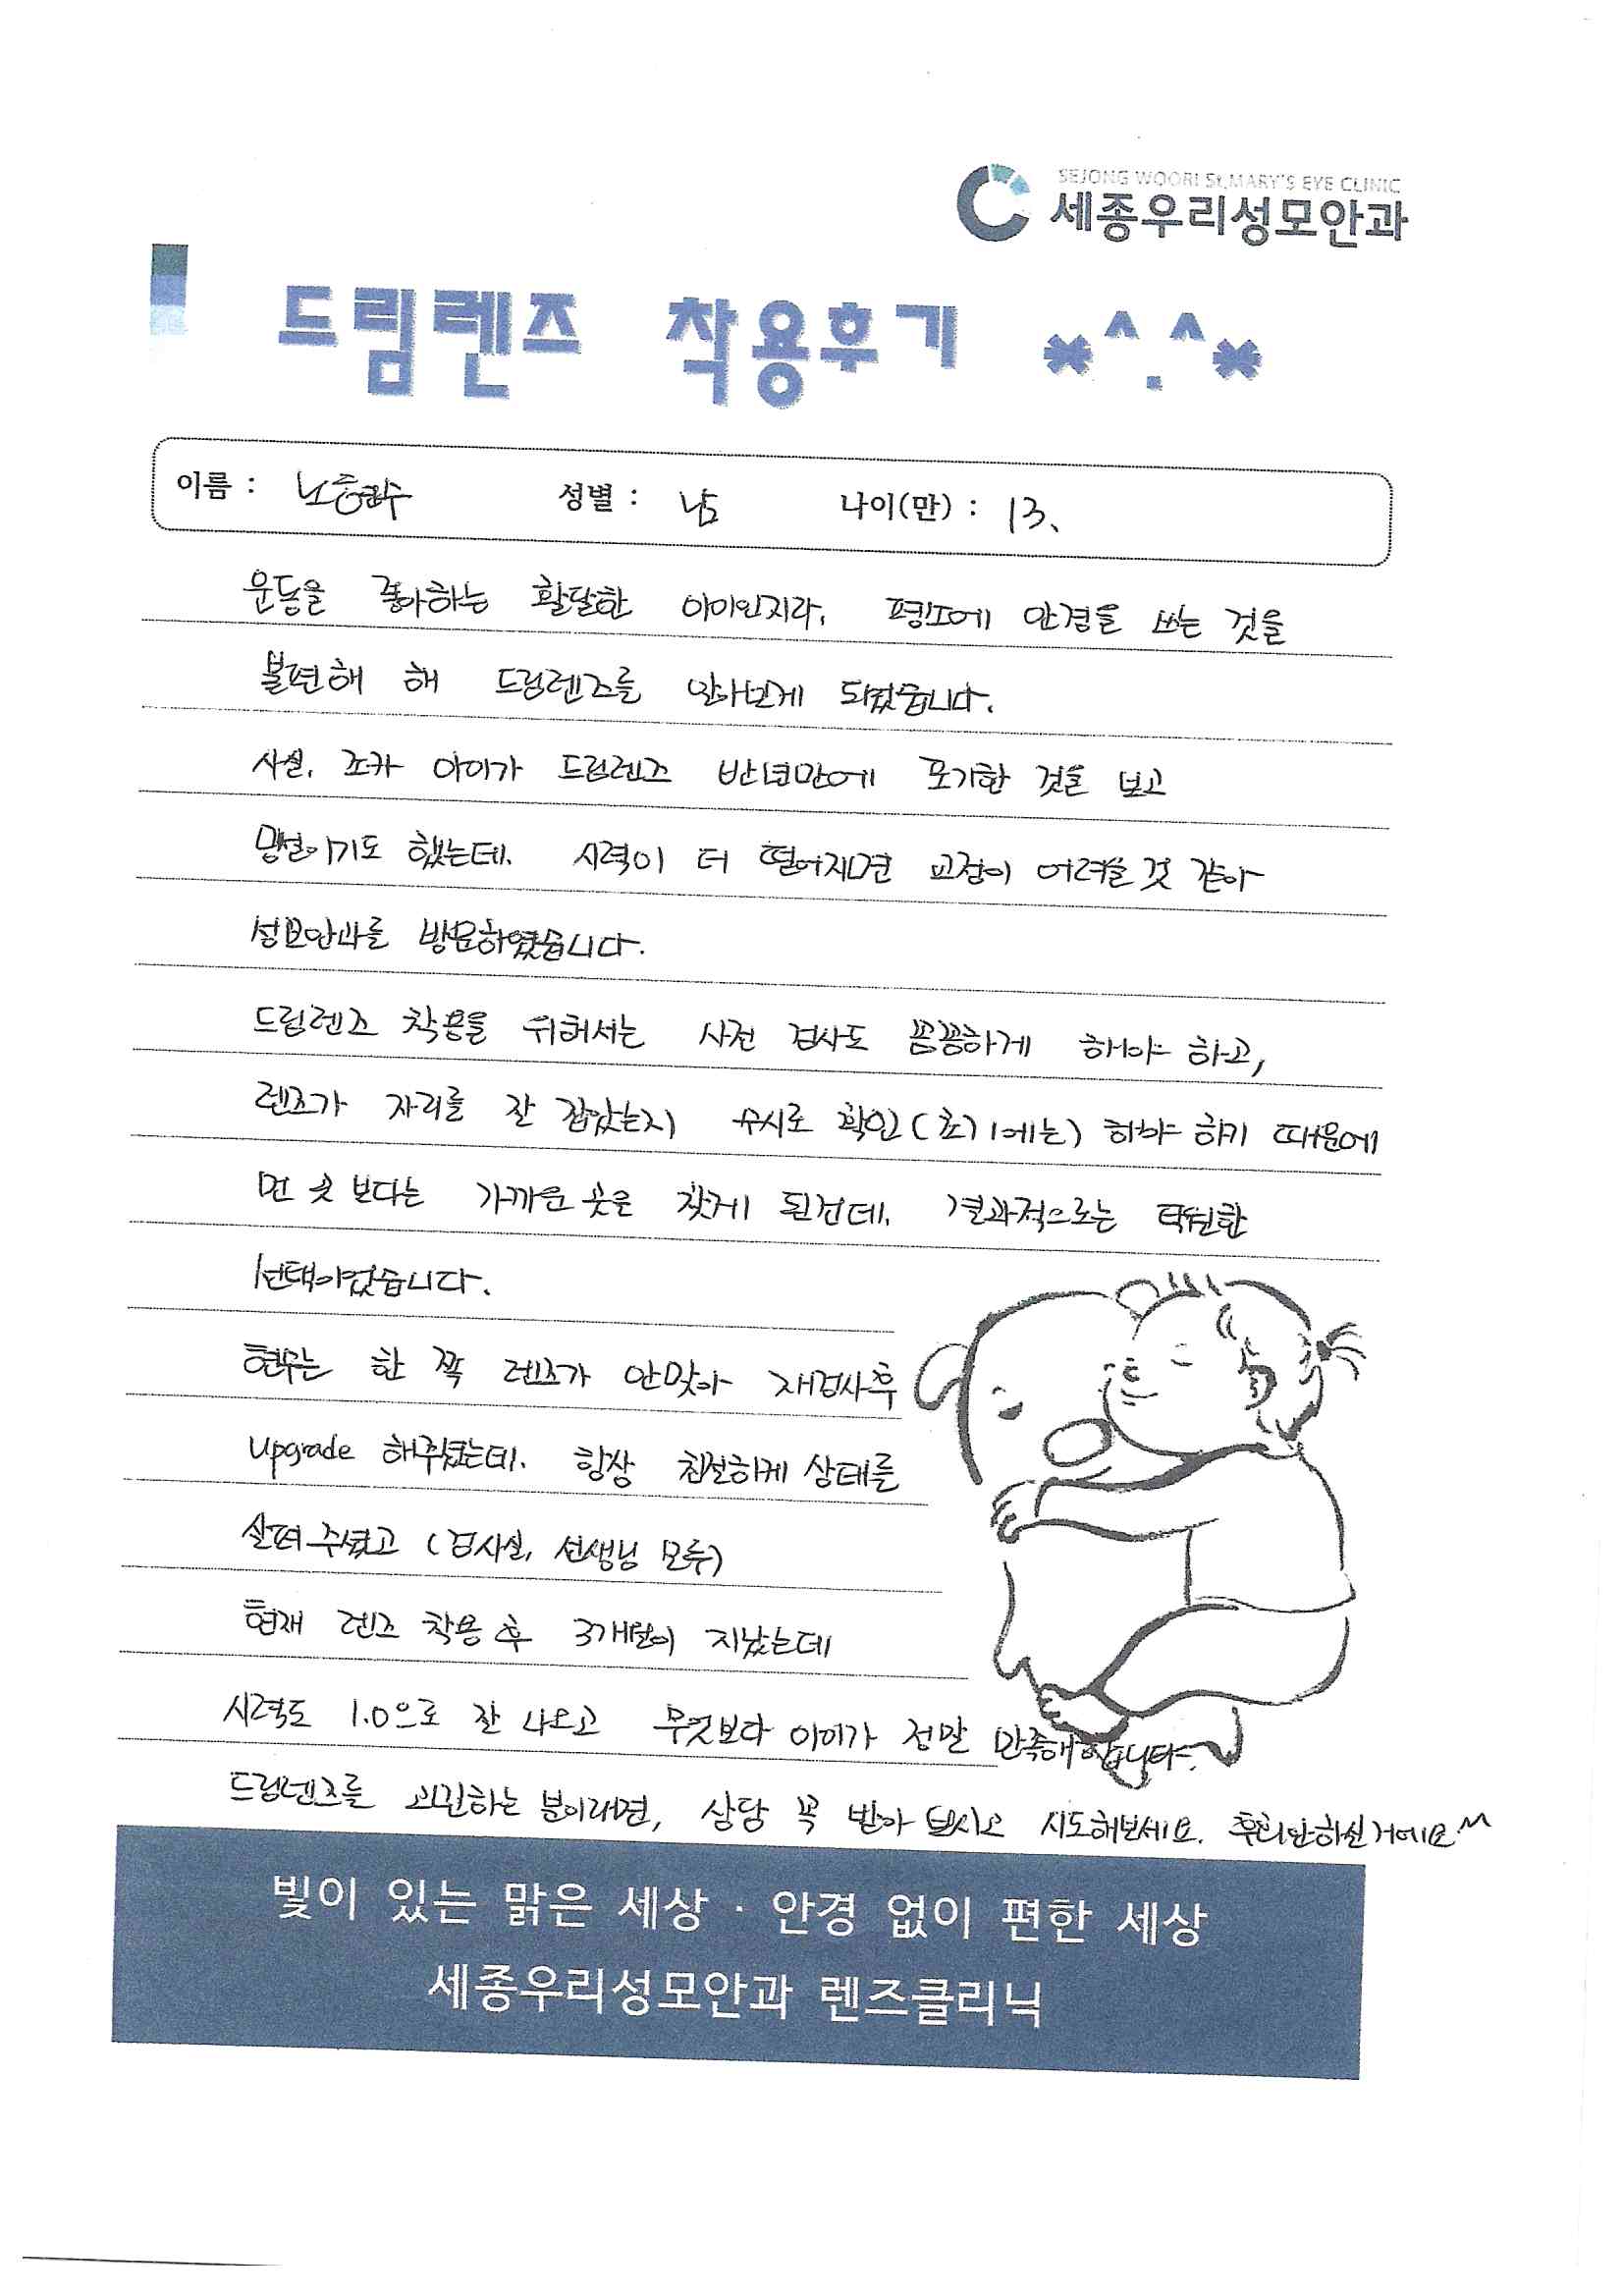 SEJONG WOORI St.MARY'S EYE CLINIC
세종우리성모안과
드림렌즈 착용후기 *^.^*
이름 : 성별 : 남 나이(만) : 13.
운동을 좋아하는 활달한 아이인지라, 평소에 안경을 쓰는 것을
불편해 해 드림렌즈를 알아보게 되었습니다.
사실, 조카 아이가 드림렌즈 반년만에 포기한 것을 보고
망설이기도 했는데, 시력이 더 떨어지면 교정이 어려울 것 같아
성모안과를 방문하였습니다.
드림렌즈 착용을 위해서는 사전 검사도 꼼꼼하게 해야 하고,
렌즈가 자리를 잘 잡았는지 수시로 확인(초기에는) 해야 하기 때문에
먼 곳 보다는 가까운 곳을 찾게 된건데, 결과적으로는 탁월한
선택이었습니다.
현수는 한 쪽 렌즈가 안맞아 재검사후
upgrade 해주셨는데, 항상 친절하게 상태를
살펴 주셨고 (검사실, 선생님 모두)
현재 렌즈 착용 후 3개월이 지났는데
시력도 1.0으로 잘 나오고 무엇보다 아이가 정말 만족해합니다.
드림렌즈를 고민하는 분이라면, 상담 꼭 받아 보시고 시도해보세요. 후회안하실거에요^^
빛이 있는 맑은 세상 · 안경 없이 편한 세상
세종우리성모안과 렌즈클리닉